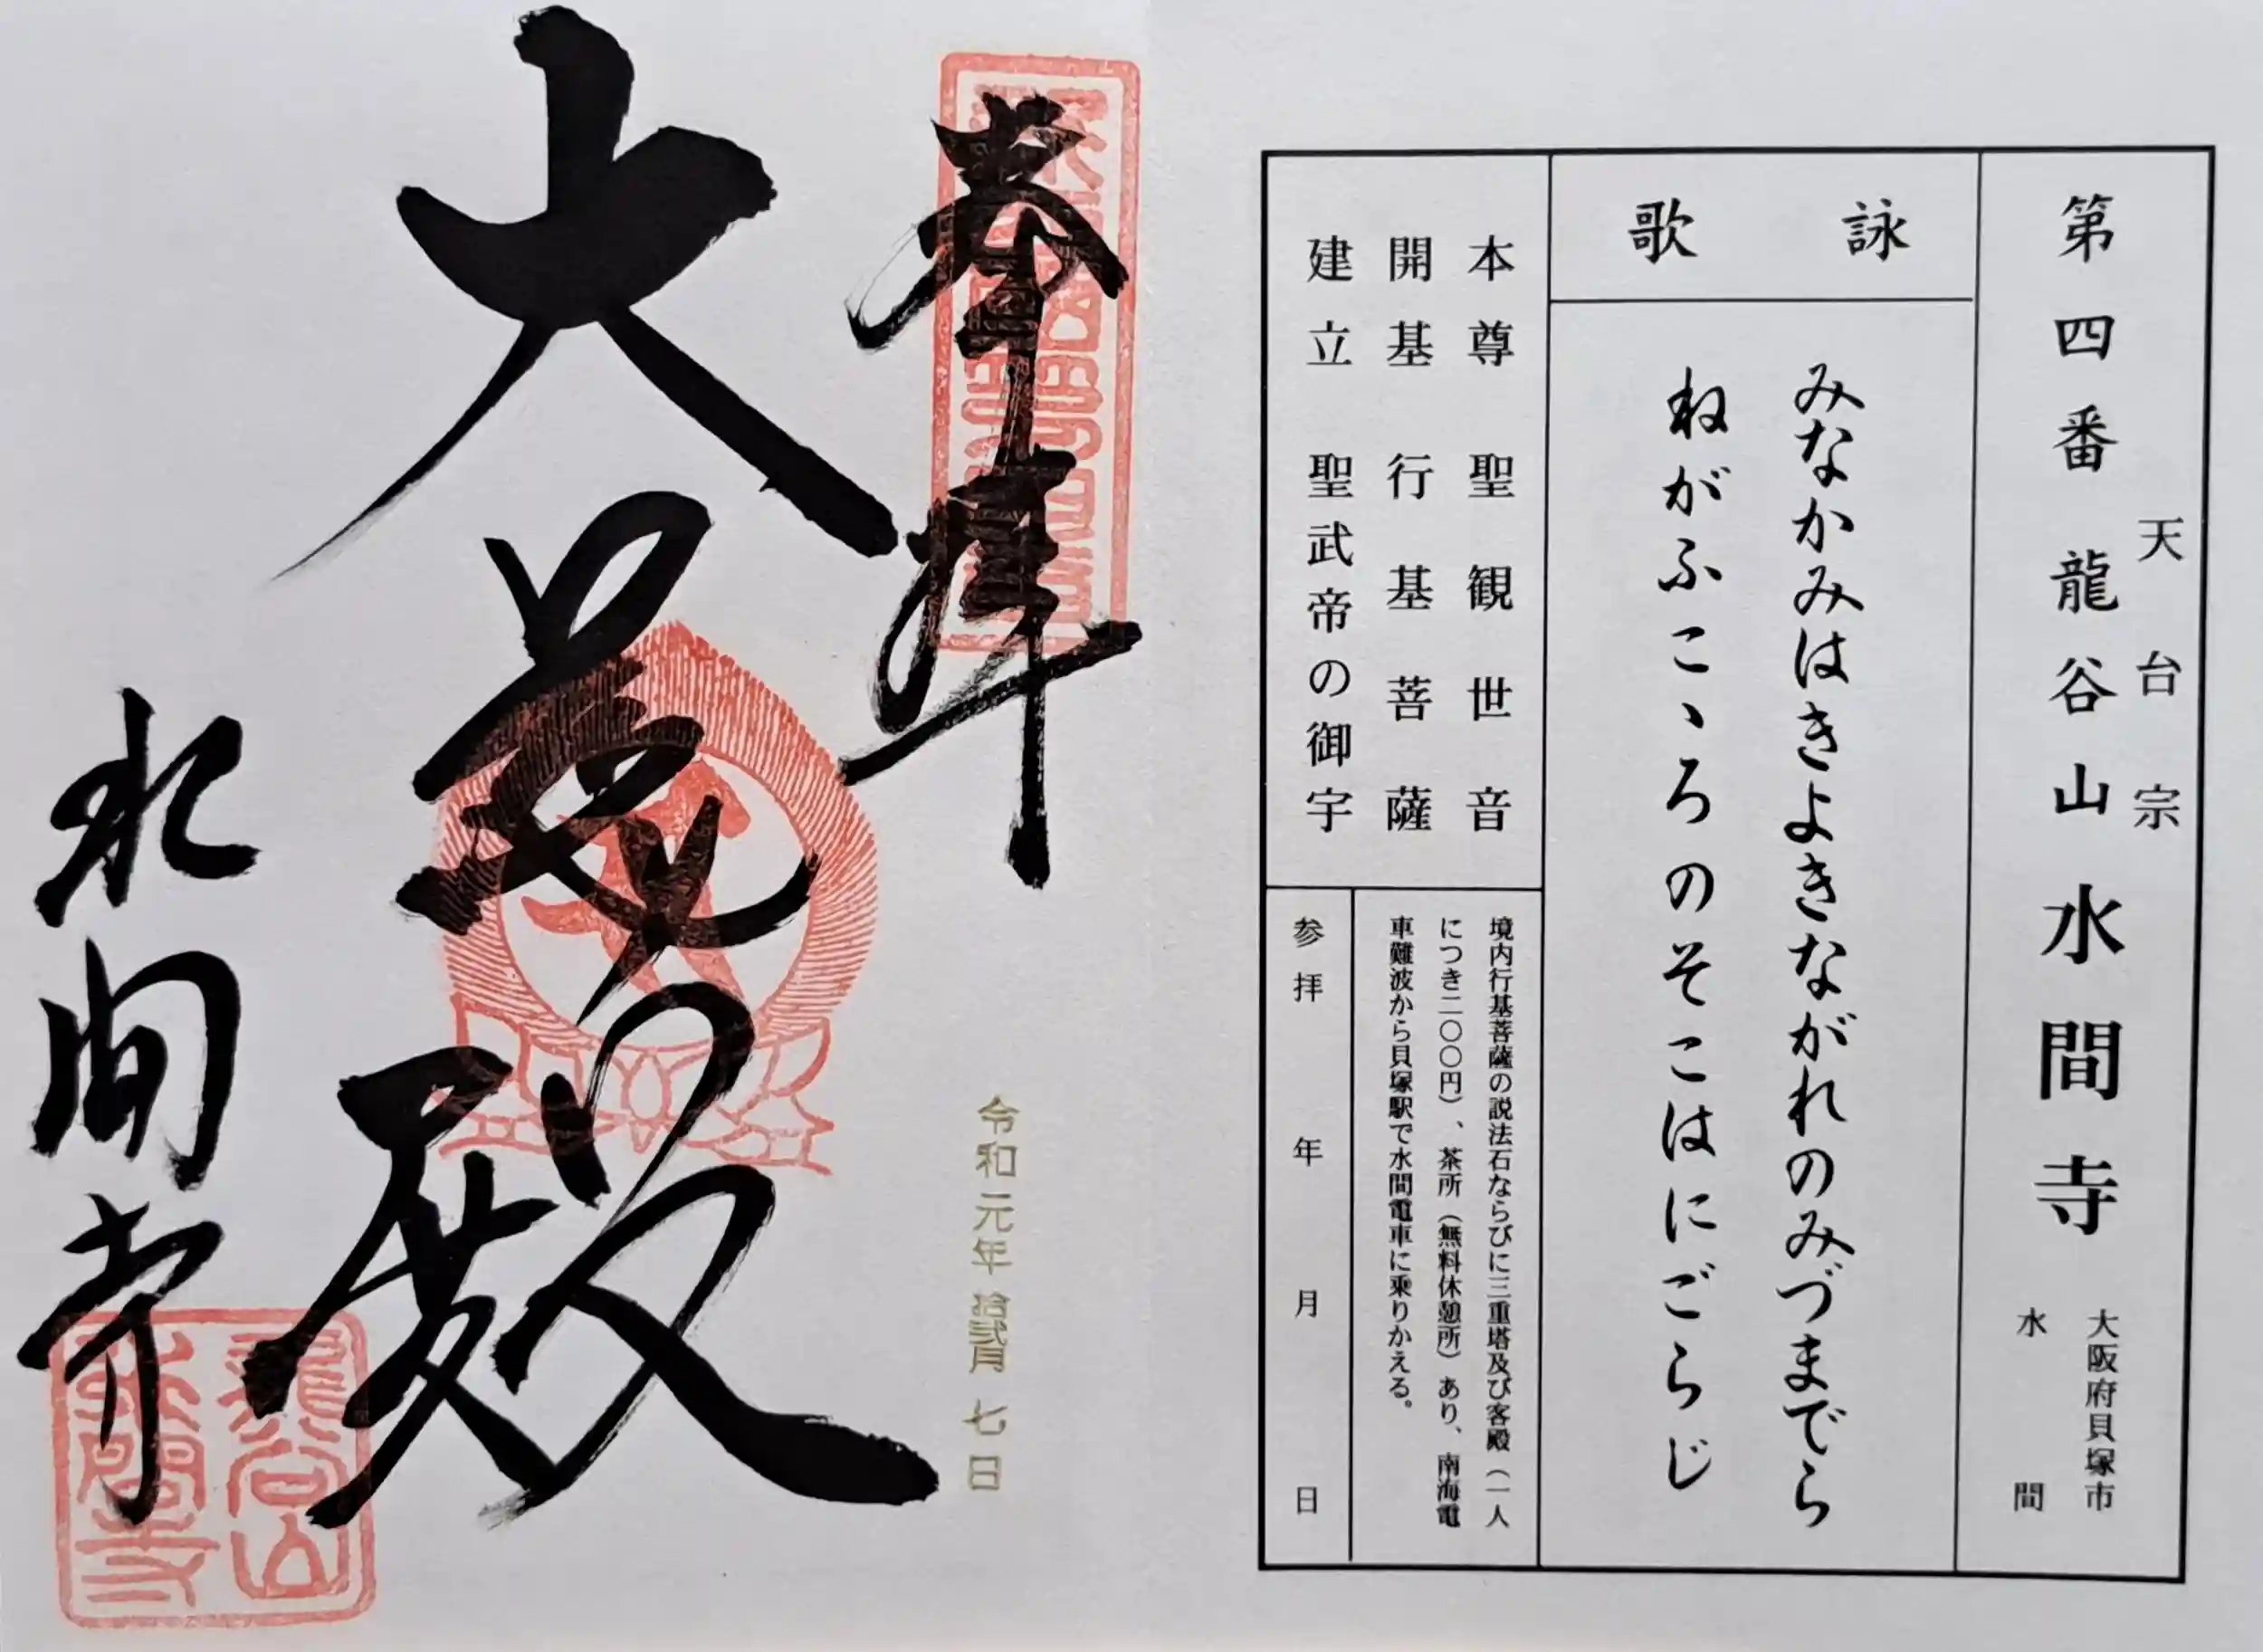 天台宗
第四番 龍谷山 水間寺
大阪府貝塚市
水間
詠歌
みなかみはきよきながれのみづまでら
ねがふこゝろのそこはにごらじ
本尊 聖観世音
開基 行基菩薩
建立 聖武帝の御宇
境内行基菩薩の説法石ならびに三重塔及び客殿(一人
につき二〇〇円)、茶所(無料休憩所)あり、南海電
車難波から貝塚駅で水間電車に乗りかえる。
参拝 年 月 日
奉拝
令和元年 拾弐月 七日
大悲殿
水間寺
龍谷山
水間寺